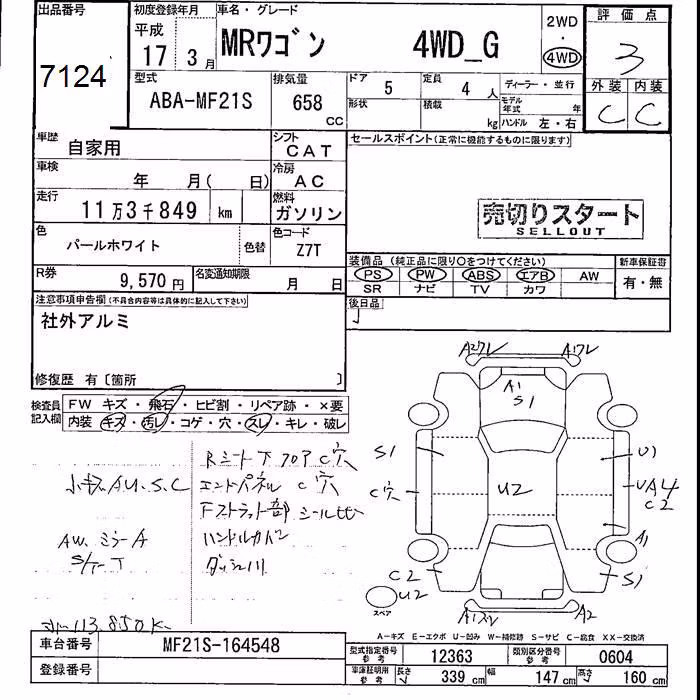 出品番号
7124
初度登録年月
平成
17 3月
車名・グレード
MRワゴン 4WD_G
2WD
・
4WD
評価点
3
外装 内装
C C
型式
ABA-MF21S
排気量
658 CC
ドア 5
形状
定員 4人
積載 kg
ディーラー・並行
モデル年式 年
ハンドル 左・右
車歴 自家用
シフト CAT
車検 年 月( 日)
冷房 AC
走行 11万3千849 km
燃料 ガソリン
色 パールホワイト 色替
色コード Z7T
R券 9,570円
名変通知期限 月 日
セールスポイント(正常に機能するものに限ります)
売切りスタート
SELLOUT
装備品(純正品に限り○をつけてください)
PS PW ABS エアB AW
SR ナビ TV カワ
新車保証書
有・無
後日品
注意事項申告欄(不具合内容等は具体的に記入して下さい)
社外アルミ
修復歴 有〔箇所 〕
検査員記入欄
FW キズ・飛石・ヒビ割・リペア跡・×要
内装 キズ・汚レ・コゲ・穴・スレ・キレ・破レ
Rシート下フロアC穴
小キズAU.S.C エンドパネル C穴
Fストラット部 シールヒビ
AW.ミラーA ハンドルカバー
113.850K
A1
S1
S1
C穴
U2
U1
UA4
C2
A1
C2
U2
S1
A2
スペア
A-キズ E-エクボ U-凹み W-補修跡 S-サビ C-腐食 XX-交換済
車台番号 MF21S-164548
登録番号
型式指定番号 参考 12363
類別区分番号 参考 0604
車庫証明用 参考 長さ 339 cm 幅 147 cm 高さ 160 cm